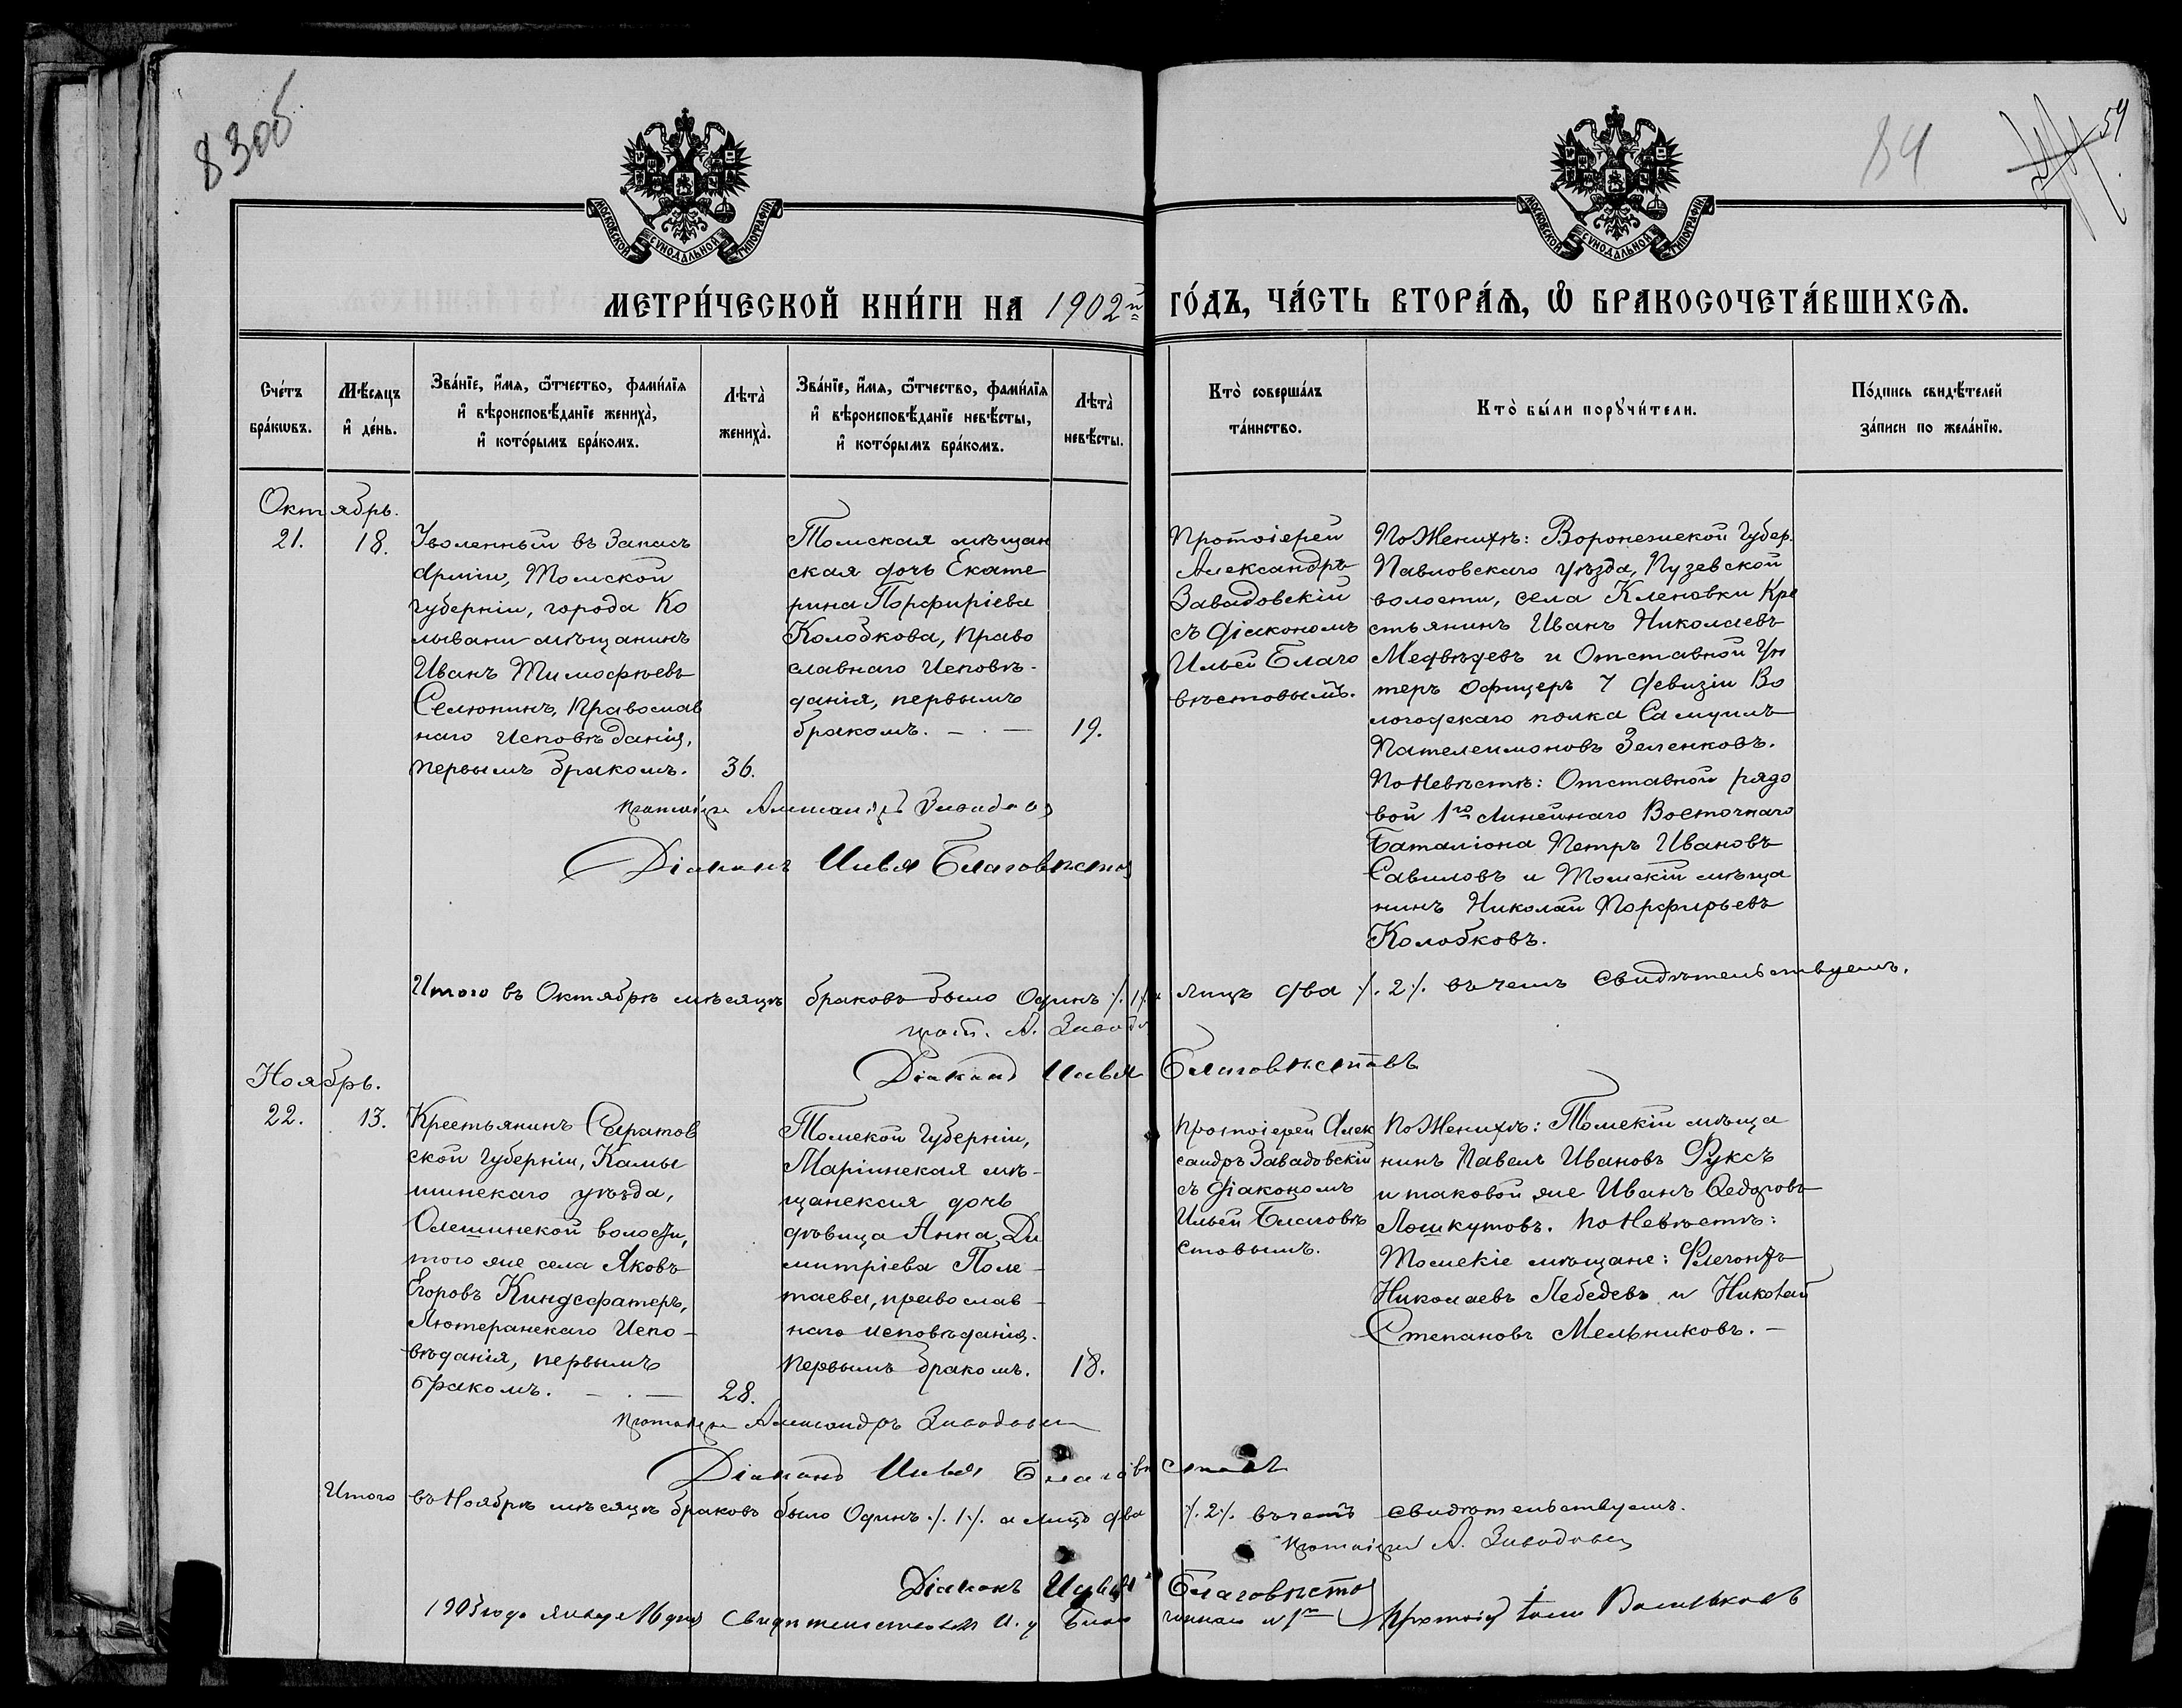 83об
84
54
МОСКОВСКОЙ СѴНОДАЛЬНОЙ ТИПОГРАФІИ
МОСКОВСКОЙ СѴНОДАЛЬНОЙ ТИПОГРАФІИ
МЕТРИ́ЧЕСКОЙ КНИ́ГИ НА 1902й ГО́ДЪ, ЧА́СТЬ ВТОРА́Ѧ, Ѡ҆ БРАКОСОЧЕТА́ВШИХСѦ.
Сче́тъ
бра́кѡвъ.
Мѣ́сяцъ
и҆ де́нь.
Зва́нїе, и҆́мѧ, ѻ҆́тчество, фами́лїѧ
и҆ вѣроисповѣ́данїе жениха̀,
и҆ кото́рымъ бра́комъ.
Лѣта̀
жениха̀.
Зва́нїе, и҆́мѧ, ѻ҆́тчество, фами́лїѧ
и҆ вѣроисповѣ́данїе невѣ́сты,
и҆ кото́рымъ бра́комъ.
Лѣта̀
невѣ́сты.
Кто̀ соверша́лъ
та́инство.
Кто̀ бы́ли порꙋчи́тели.
По́дпись свидѣ́телей
за́писи по жела́нїю.
Октябрь.
21.
18.
Уволенный въ Запасъ
Арміи, Томской
губерніи, города Ко
лывани мѣщанинъ
Иванъ Тимофѣевъ
Селюнинъ, Православ
наго Исповѣданія,
первымъ бракомъ.
36.
Томская мѣщан
ская дочь Екате
рина Порфиріева
Колобкова, Право
славнаго Исповѣ-
данія, первымъ
бракомъ. — . —
19.
Протоіерей
Александръ
Завадовскій
съ Діакономъ
Ильей Благо
вѣстовымъ.
По Женихѣ: Воронежской Губер.
Павловскаго Уѣзда, Пузевской
волости, села Кленовки Кре
стьянинъ Иванъ Николаевъ
Медвѣдевъ и Отставной Ун
теръ Офицеръ 7 девизіи Во
логодскаго полка Самуилъ
Пателеимоновъ Зеленковъ.
По Невѣстѣ: Отставной рядо
вой 1го Линейнаго Восточнаго
Баталіона Петръ Ивановъ
Савиловъ и Томскій мѣща
нинъ Николай Порфирьевъ
Колобковъ.
Протоіерей Александръ Завадов
Діаконъ Илья Благовѣстов
Итого въ Октябрѣ мѣсяцѣ браковъ было Одинъ ./. 1 ./. а лицъ два ./. 2 ./. въ чемъ свидѣтельствуемъ.
прот. А. Завадо
Діаконъ Илья Благовѣстовъ
Ноябрь.
22.
13.
Крестьянинъ Саратов
ской Губерніи, Камы
шинскаго уѣзда,
Олешинской волости,
того же села Яковъ
Егоровъ Киндсфатеръ,
Лютеранскаго Испо-
вѣданія, первымъ
бракомъ. — . —
28.
Томской Губерніи,
Маріинская мѣ-
щанская дочь
дѣвица Анна Ди
митріева Поле-
таева, православ-
наго исповѣданія.
Первымъ бракомъ.
18.
Протоіерей Алек
сандръ Завадовскій
съ Діакономъ
Ильей Благовѣ
стовымъ.
По Женихѣ: Томскій мѣща
нинъ Павелъ Ивановъ Фуксъ
и таковой же Иванъ Ѳедоровъ
Лошкутовъ. По Невѣстѣ:
Томскіе мѣщане: Флегонтъ
Николаевъ Лебедевъ и Николай
Степановъ Мельниковъ. —
Протоіерей Александръ Завадовск
Діаконъ Илья Благовѣстовъ
Итого въ Ноябрѣ мѣсяцѣ браковъ было Одинъ ./. 1 ./. а лицъ два ./. 2 ./. въ чемъ свидѣтельствуемъ.
Протоіерей А. Завадовск
Діаконъ Илья Благовѣстов
1903 года Января 16 дня Свидѣтельствовалъ И. д. Благочиннаго № 1го Протоіер